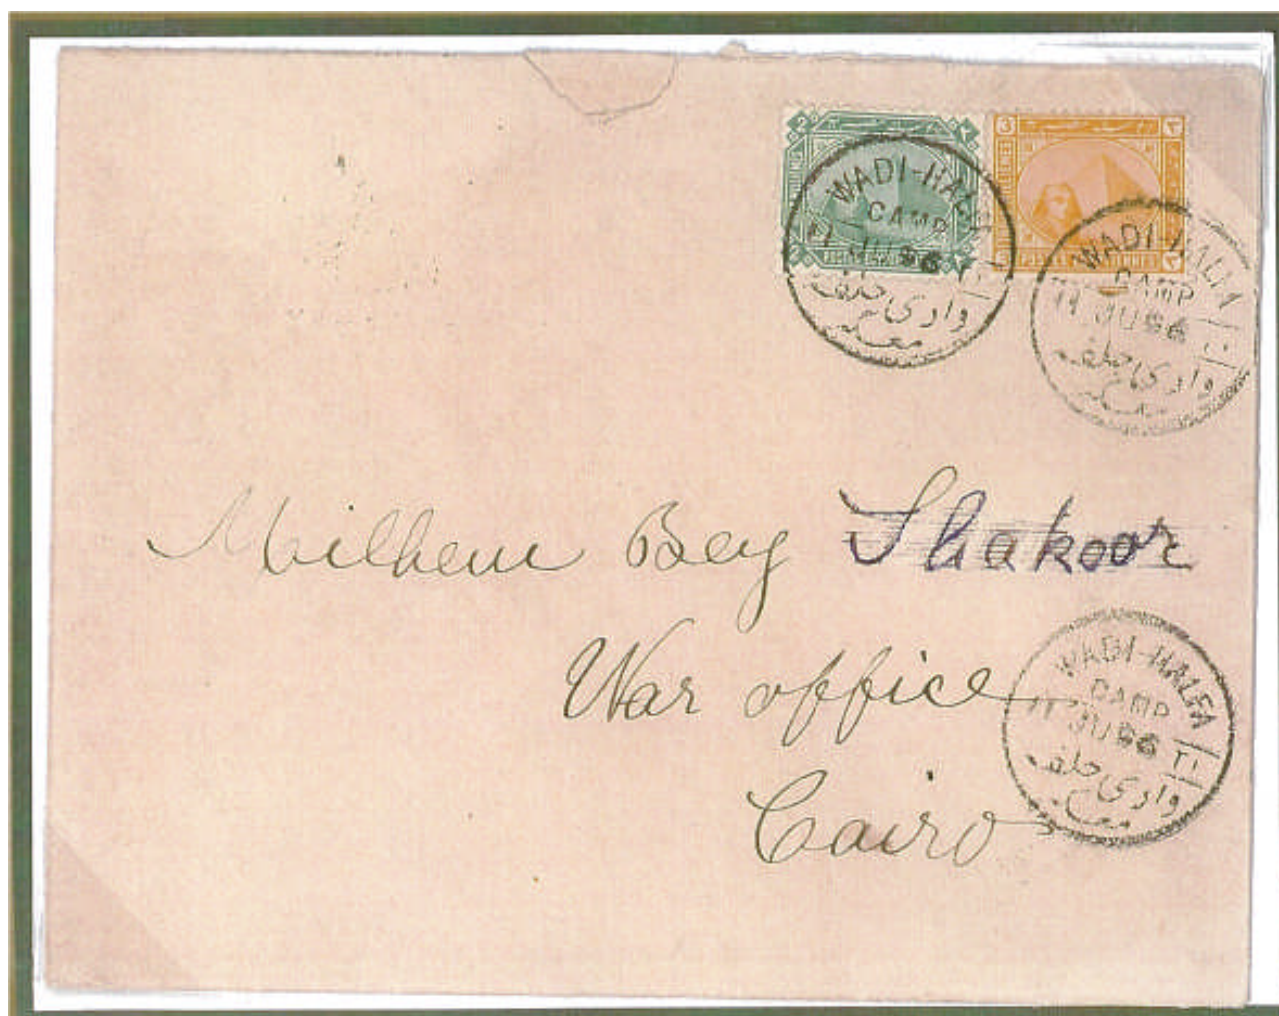 WADI-HALFA
CAMP
JU 96
وادى حلفه
معسكر
3
٣
WADI-HALFA
CAMP
11 JU 96
وادى حلفه
معسكر
Milhem Bey Shakoor
War office
Cairo
WADI-HALFA
CAMP
11 JU 96 T1
وادى حلفه
معسكر